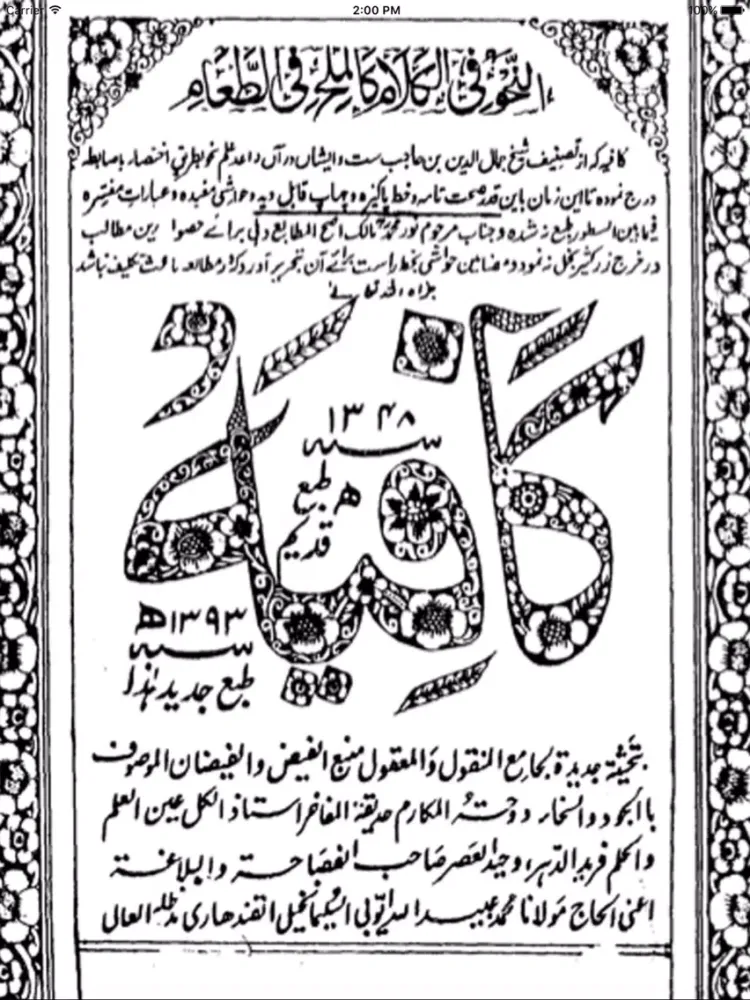 Carrier 2:00 PM 100%
النحو فی الکلام کالملح فی الطعام
کافیہ کہ از تصنیف شیخ جمال الدین بن حاجب ست و ایشان در آں قواعد علم نحو بطریق اختصار با ضابطہ
درج نمودہ تا این زمان باین قدر صحت تامہ و خط پاکیزہ و چھاپ قابل دید و حواشی مفیدہ و عبارات مفسرہ
فیما بین السطور طبع نہ شدہ و جناب مرحوم نور محمد مالک اصح المطابع دہلی برائے حصول این مطالب
در خرج زر کثیر بخل نہ نمود و مضامین حواشی بخط راست برائے آن تحریر آورد کہ در مطالعہ باعث تکلیف نباشد
جزاہ اللہ تعالیٰ
کافیہ
۱۳۴۸
سنہ
ھ طبع
قدیم
۱۳۹۳ھ
سنہ
طبع جدید ہذا
بتحشیة جدیدة لجامع المنقول والمعقول منبع الفیض والفیضان الموصوف
باالجود والسخاء دوحتہ المکارم حدیقة المفاخر استاذ الکل عین العلم
والحلم فرید الدہر وحید العصر صاحب الفصاحة والبلاغة
اعنی الحاج مولانا محمد عبید اللہ ایوبی السلیمانخیل القندھاری مدظلہ العالی